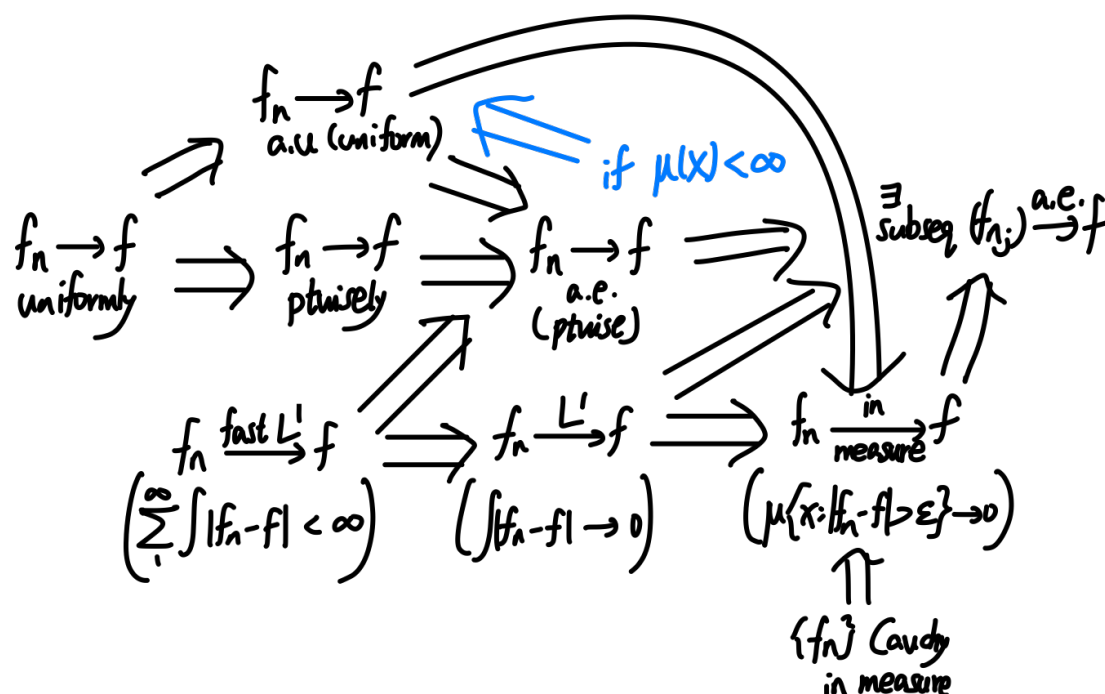 fₙ → f
a.u (uniform)
if μ(X) < ∞
∃
subseq (fₙⱼ) a.e.→ f
fₙ → f
uniformly
fₙ → f
ptwisely
fₙ → f
a.e.
(ptwise)
fₙ fast L¹→ f
(∑₁^∞ ∫|fₙ-f| < ∞)
fₙ L¹→ f
(∫|fₙ-f| → 0)
fₙ in measure→ f
(μ{x:|fₙ-f|>ε}→0)
{fₙ} Cauchy
in measure